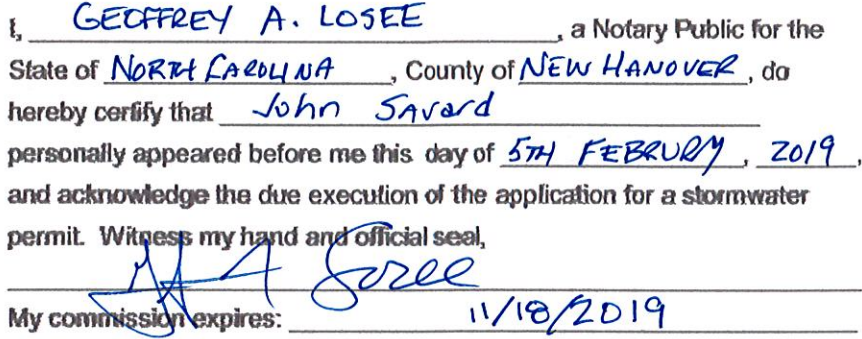 I, GEOFFREY A. LOSEE, a Notary Public for the
State of NORTH CAROLINA, County of NEW HANOVER, do
hereby certify that John Savard
personally appeared before me this day of 5TH FEBRURY, 2019,
and acknowledge the due execution of the application for a stormwater
permit. Witness my hand and official seal,
Losee
My commission expires: 11/18/2019